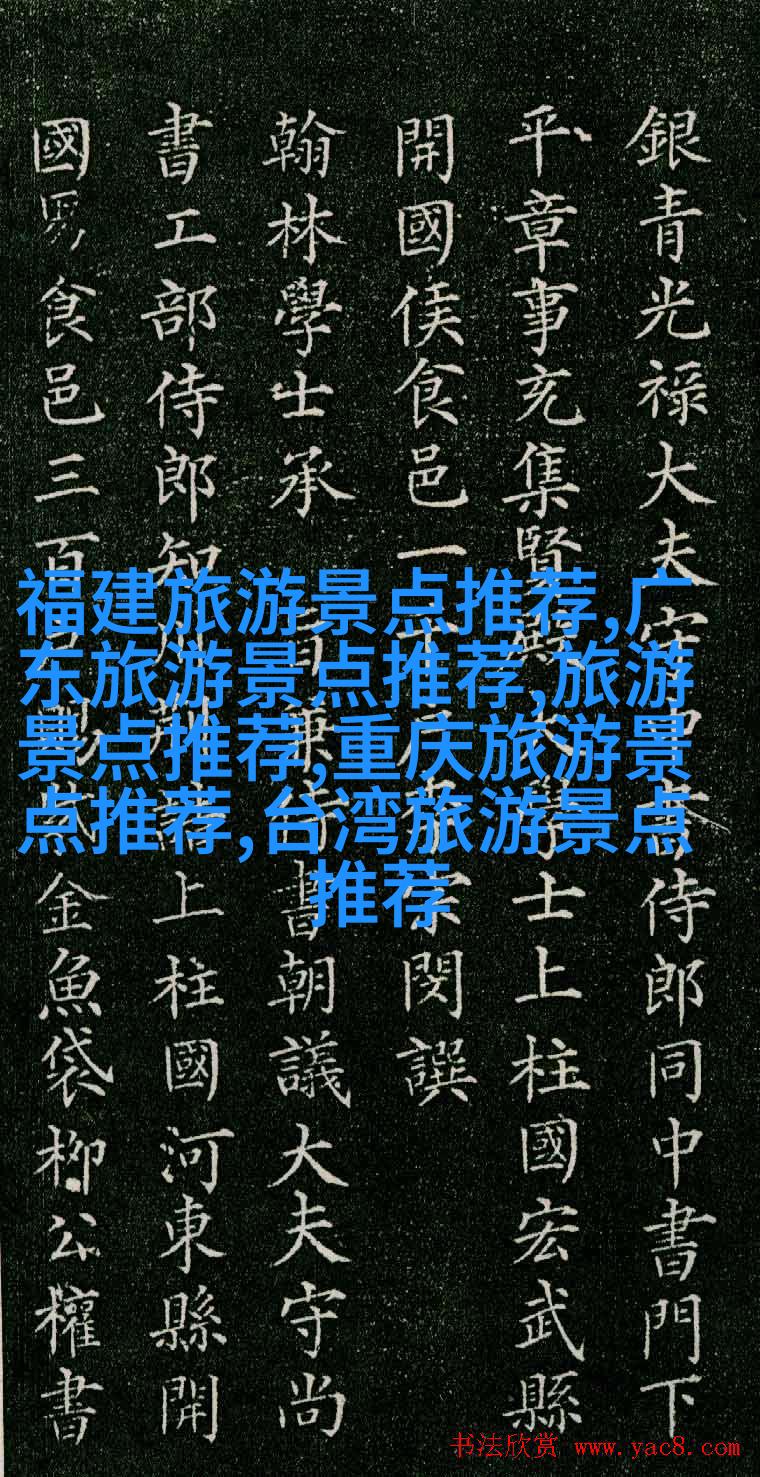 銀青光禄大夫守中書侍郎同中書門下
平章事充集賢殿大學士上柱國宏武縣
開國侯食邑一千戶李宗閔譔
翰林學士承旨兼侍書朝議大夫守尚
書工部侍郎知制誥上柱國河東縣開
國男食邑三百戶賜紫金魚袋柳公權書
福建旅游景点推荐,广
东旅游景点推荐,旅游
景点推荐,重庆旅游景
点推荐,台湾旅游景点
推荐
书法欣赏 www.yac8.com